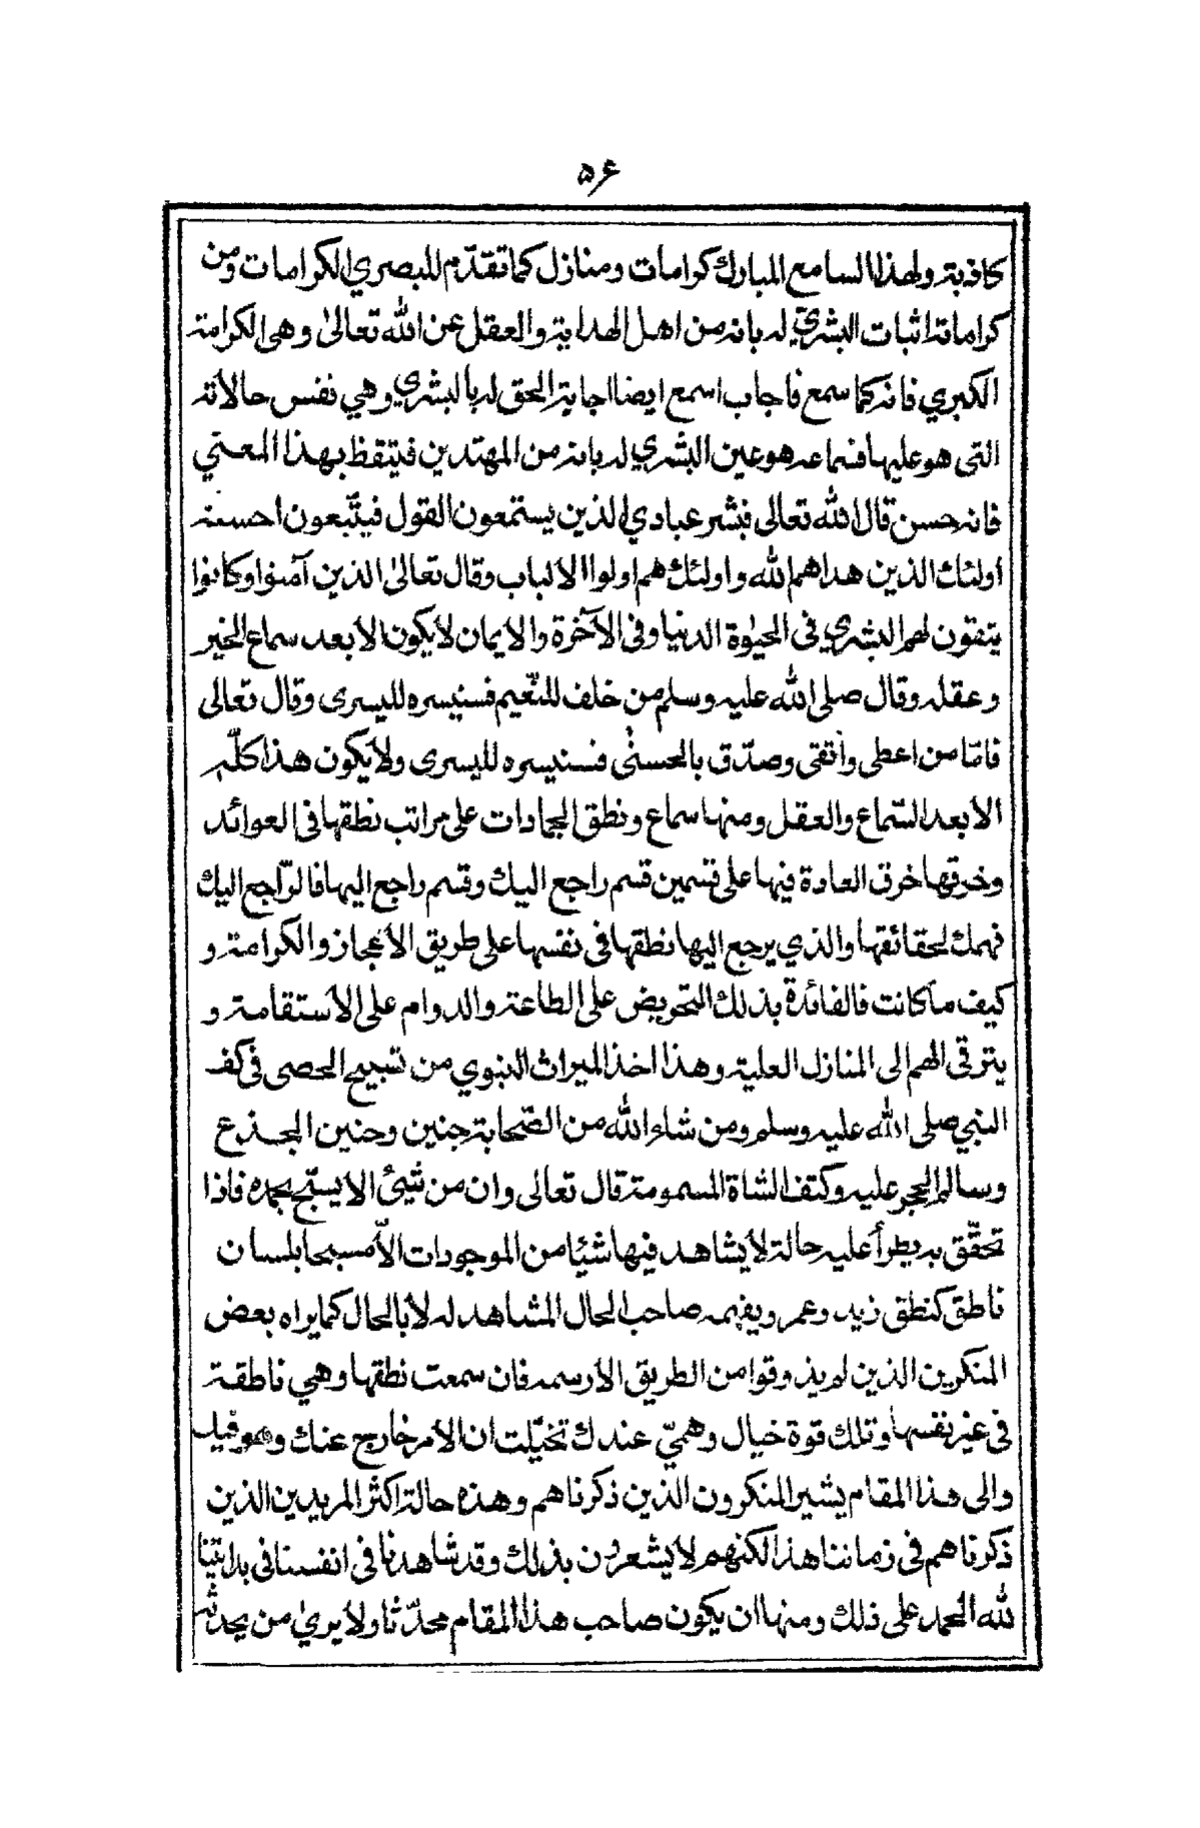 ۵۶
كاذبة ولهذا السامع المبارك كرامات ومنازل كما تقدّم للبصري الكرامات ومن
كراماته اثبات البشري له بانه من اهل الهداية والعقل عن الله تعالىٰ وهى الكرامة
الكبري فانه كما سمع فاجاب اسمع ايضا اجابة الحق له بالبشري وهي نفس حالاته
التى هو عليها فسماعه هو عين البشري له بانه من المهتدين فيتقظ بهذا المعني
فانه حسن قال الله تعالى فبشر عبادي الذين يستمعون القول فيتّبعون احسنه
اولئك الذين هداهم الله واولئك هم اولوا الالباب وقال تعالىٰ الذين آمنوا وكانوا
يتقون لهم البشري فى الحيٰوة الدنيا وفى الآخرة والايمان لايكون الا بعد سماع الخبر
وعقله وقال صلى الله عليه وسلم من خلف للنّعيم فسنيسره لليسرى وقال تعالى
فامّا من اعطى واتقى وصدّق بالحسنٰى فسنيسره لليسرى ولايكون هذا كلّه
الا بعد السّماع والعقل ومنها سماع ونطق الجمادات على مراتب نطقها فى العوائد
وخرقها خرق العادة فيها على قسمين قسم راجع اليك وقسم راجع اليها فالرّاجع اليك
فهمك لحقائقها والذي يرجع اليها نطقها فى نفسها على طريق الأعجاز والكرامة و
كيف ما كانت فالفائدة بذلك التحريض على الطاعة والدوام على الأستقامة و
يترقى الهم الى المنازل العلية وهذا اخذ الميراث النبوي من تسبيح الحصى فى كف
النبي صلى الله عليه وسلم ومن شاء الله من الصّحابة جنين وحنين الجذع
وسالم الحجر عليه وكتف الشاة المسمومة قال تعالى وان من شيئ الا يسبّح بحمده فاذا
تحقّق به يطرأ عليه حالة لايشاهد فيها شيئا من الموجودات الاّ مسبحا بلسان
ناطق كنطق زيد وعمر ويفهمه صاحب الحال المشاهد له لا بالحال كما يراه بعض
المنكرين الذين لم يذوقوا من الطريق الأرسمه فان سمعت نطقها وهي ناطقة
فى غير نفسها وتلك قوة خيال وهميّ عندك تخيّلت ان الأمر خارج عنك وهو فيك
والى هذا المقام يشير المنكرون الذين ذكرناهم وهذه حالة اكثر المريدين الذين
ذكرناهم فى زماننا هذا لكنهم لايشعرون بذلك وقد شاهدنا فى انفسنا فى بدايتنا
لله الحمد على ذلك ومنها ان يكون صاحب هذا المقام محدّثا ولايرىٰ من يحدثه